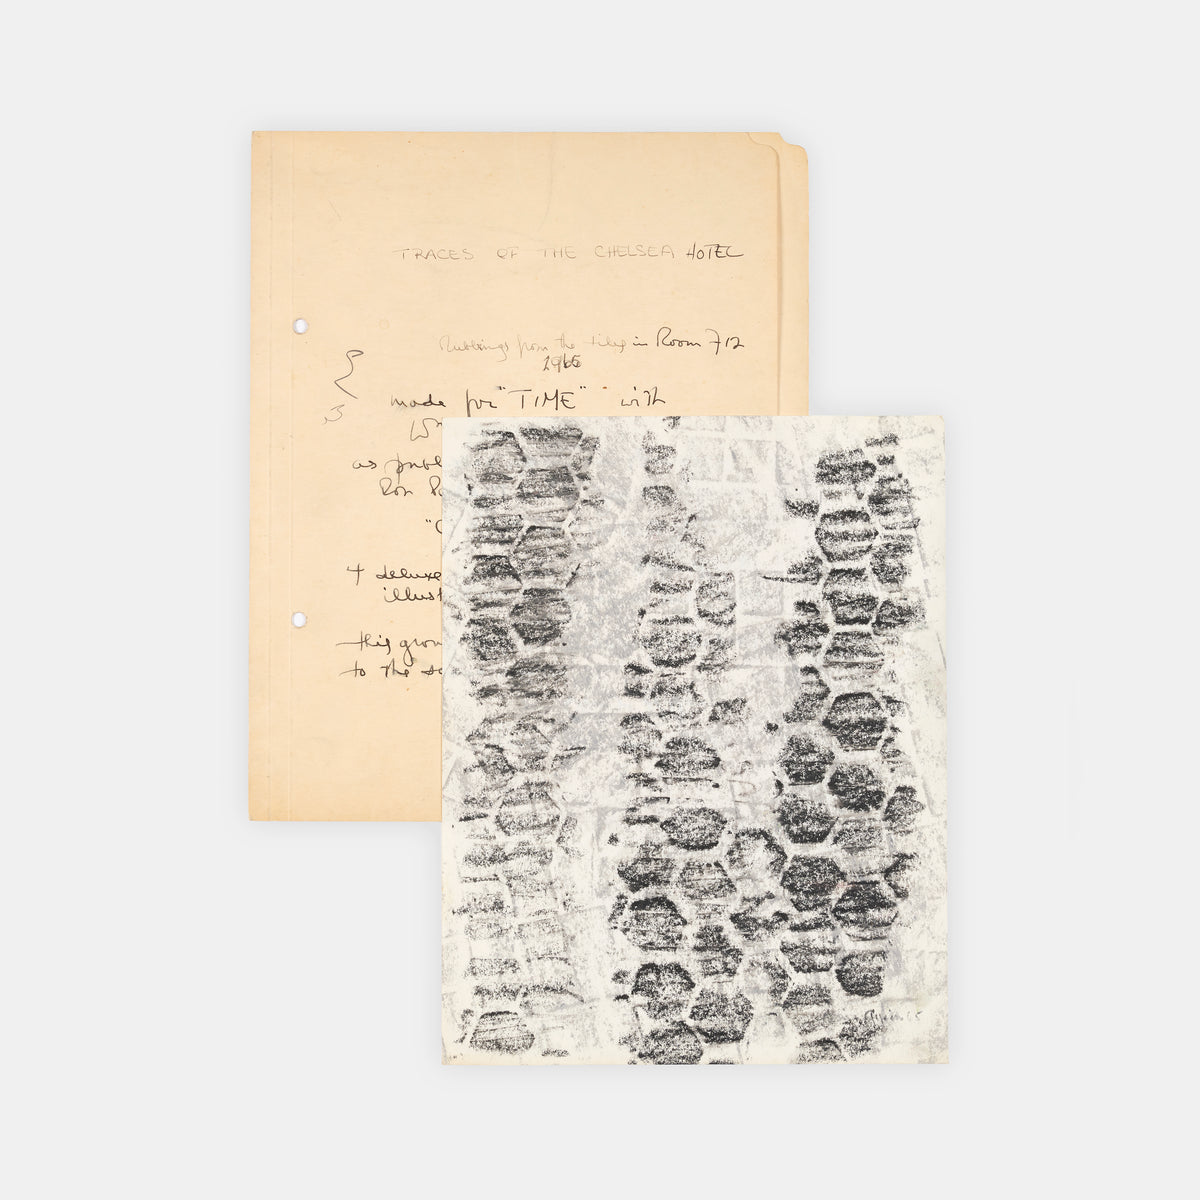 TRACES OF THE CHELSEA HOTEL
Rubbings from the tiles in Room 712
1965
made for "TIME" with
W
as publ
Ron P
"C
4 deluxe
illust
this grou
to the sa